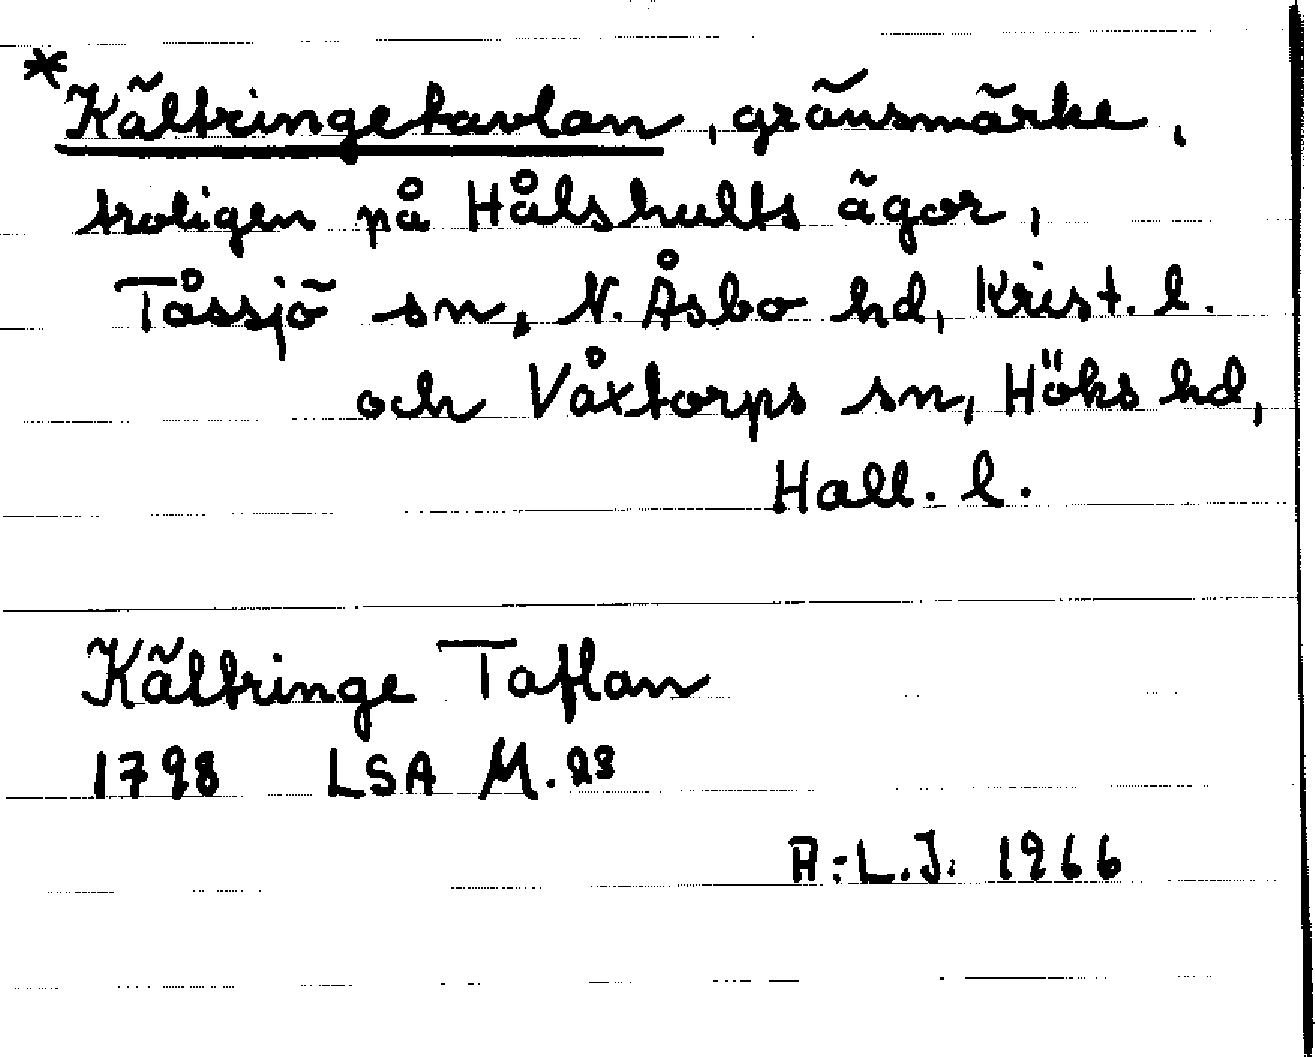 *Kältringetavlan, gränsmärke,
troligen på Hålshults ägor,
Tåssjö sn, N. Åsbo hd, Krist. l.
och Våxtorps sn, Höks hd,
Hall. l.
Kältringe Taflan
1798 LSA M. 28
A:L.J. 1966